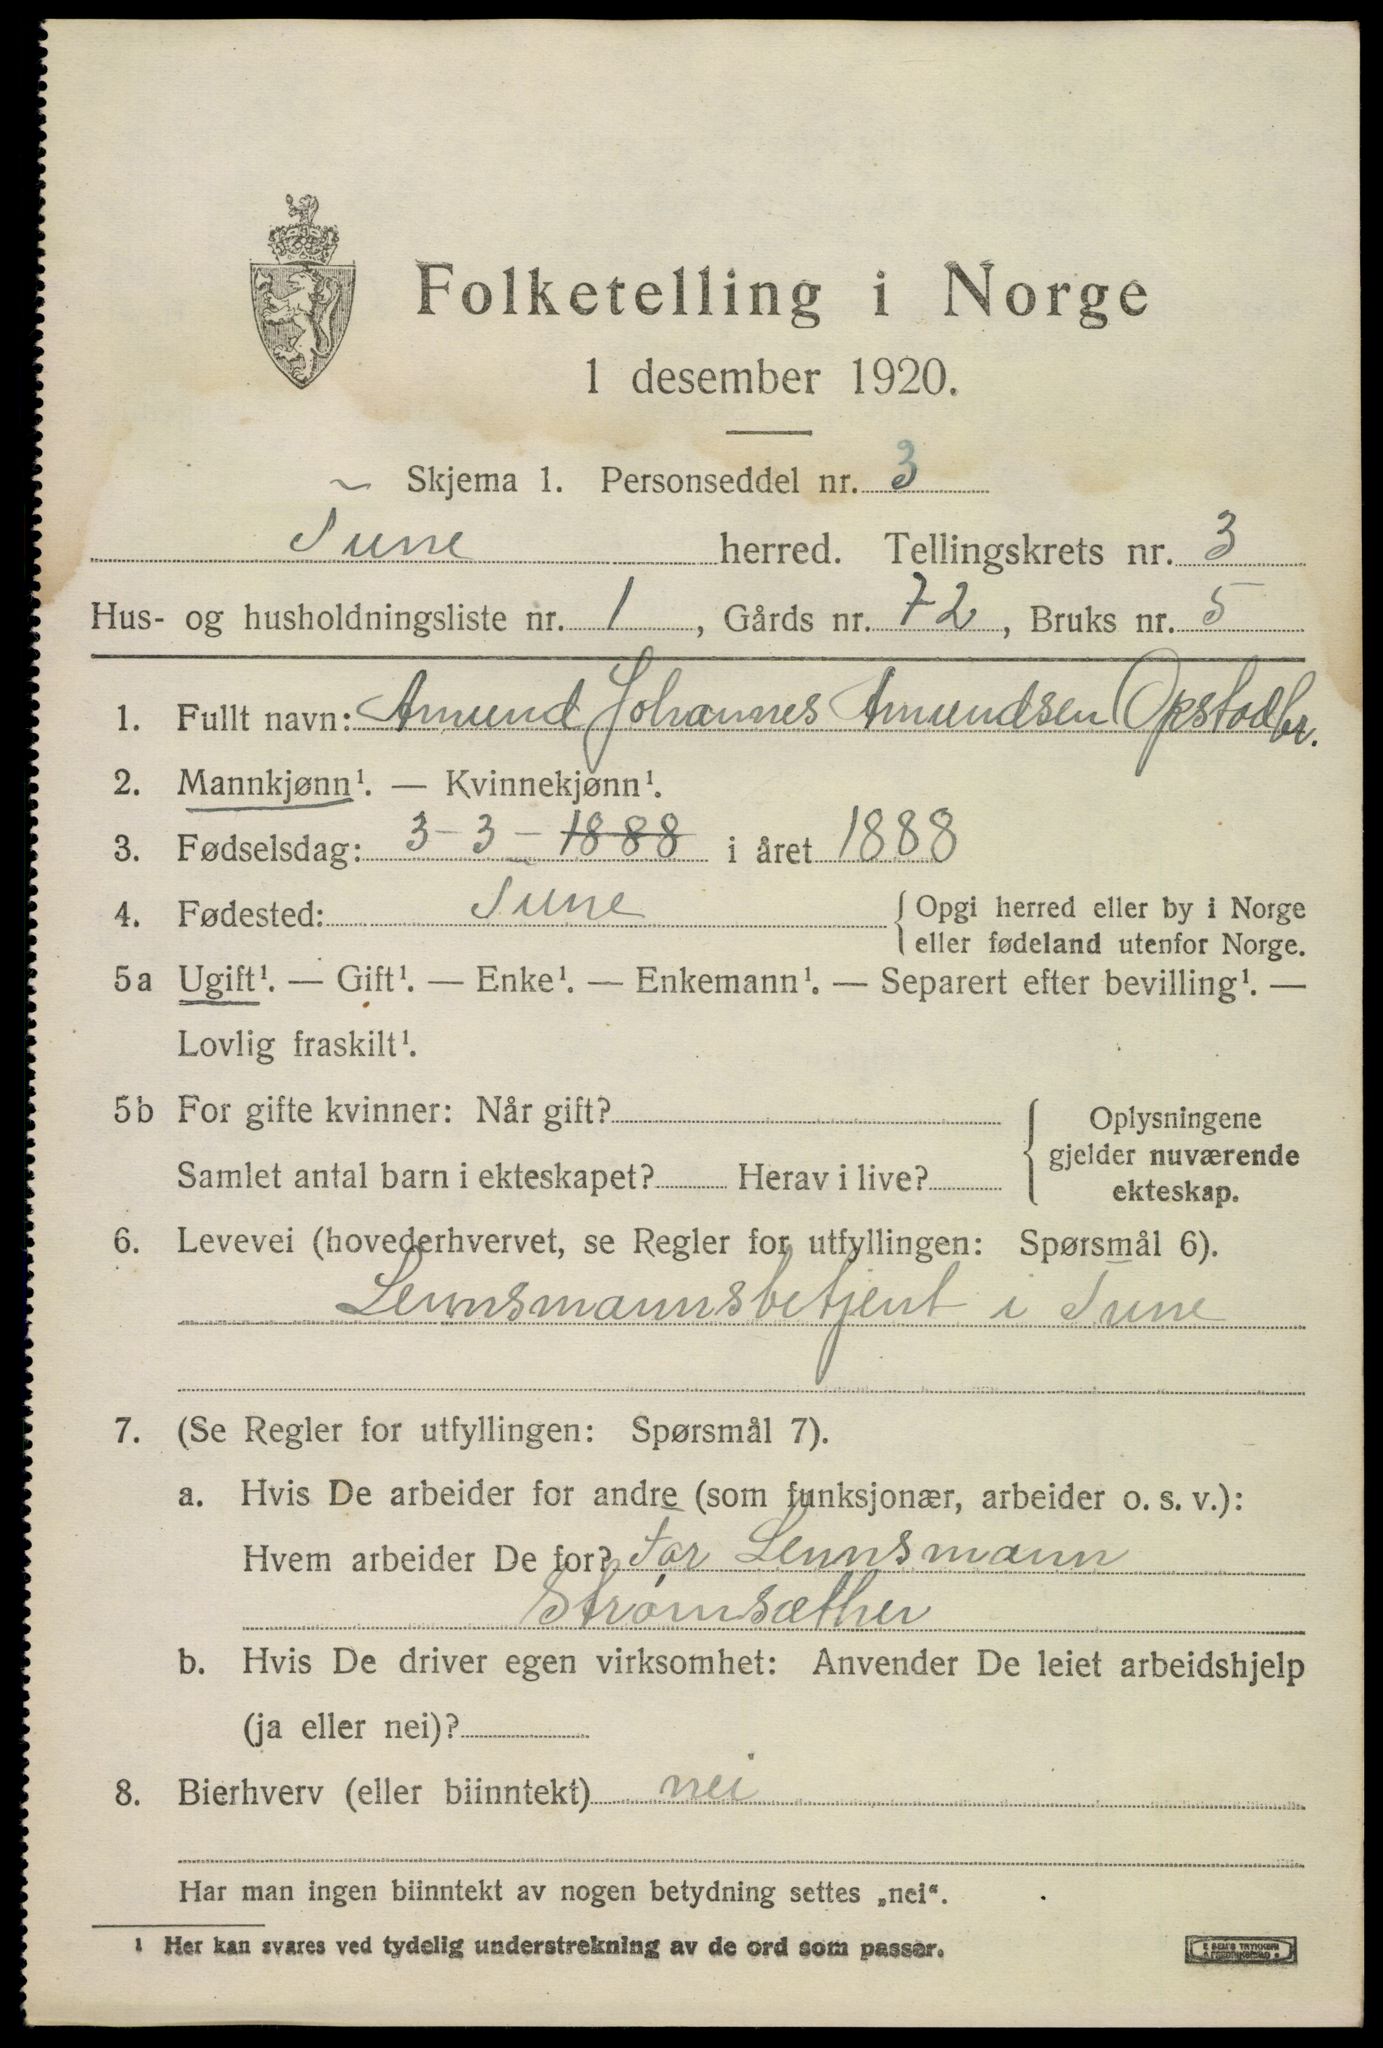 Folketelling i Norge
1 desember 1920.
Skjema 1. Personseddel nr. 3
Tune herred. Tellingskrets nr. 3
Hus- og husholdningsliste nr. 1, Gårds nr. 72, Bruks nr. 5
1. Fullt navn: Amund Johannes Amundsen Opstad br.
2. Mannkjønn¹. — Kvinnekjønn¹.
3. Fødselsdag: 3-3-1888 i året 1888
4. Fødested: Tune { Opgi herred eller by i Norge
eller fødeland utenfor Norge.
5a Ugift¹. — Gift¹. — Enke¹. — Enkemann¹. — Separert efter bevilling¹. —
Lovlig fraskilt¹.
5b For gifte kvinner: Når gift? { Oplysningene
gjelder nuværende
Samlet antal barn i ekteskapet? Herav i live?
ekteskap.
6. Levevei (hovederhvervet, se Regler for utfyllingen: Spørsmål 6).
Lennsmannsbetjent i Tune
7. (Se Regler for utfyllingen: Spørsmål 7).
a. Hvis De arbeider for andre (som funksjonær, arbeider o. s. v.):
Hvem arbeider De for? For Lennsmann
Strømsæther
b. Hvis De driver egen virksomhet: Anvender De leiet arbeidshjelp
(ja eller nei)?
8. Bierhverv (eller biinntekt) nei
Har man ingen biinntekt av nogen betydning settes „nei“.
¹ Her kan svares ved tydelig understrekning av de ord som passer.